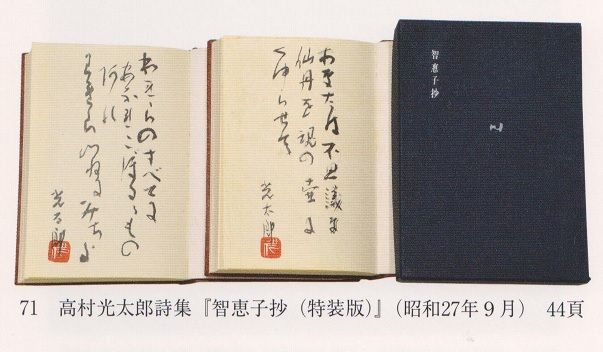 智恵子抄
あなたは不思議な
仙丹を魂の壺に
くゆらせて
光太郎
われらのすべてに
あふれこぼるるもの
あれ
われらつねにみちよ
光太郎
71 高村光太郎詩集『智恵子抄（特装版）』（昭和27年９月） 44頁